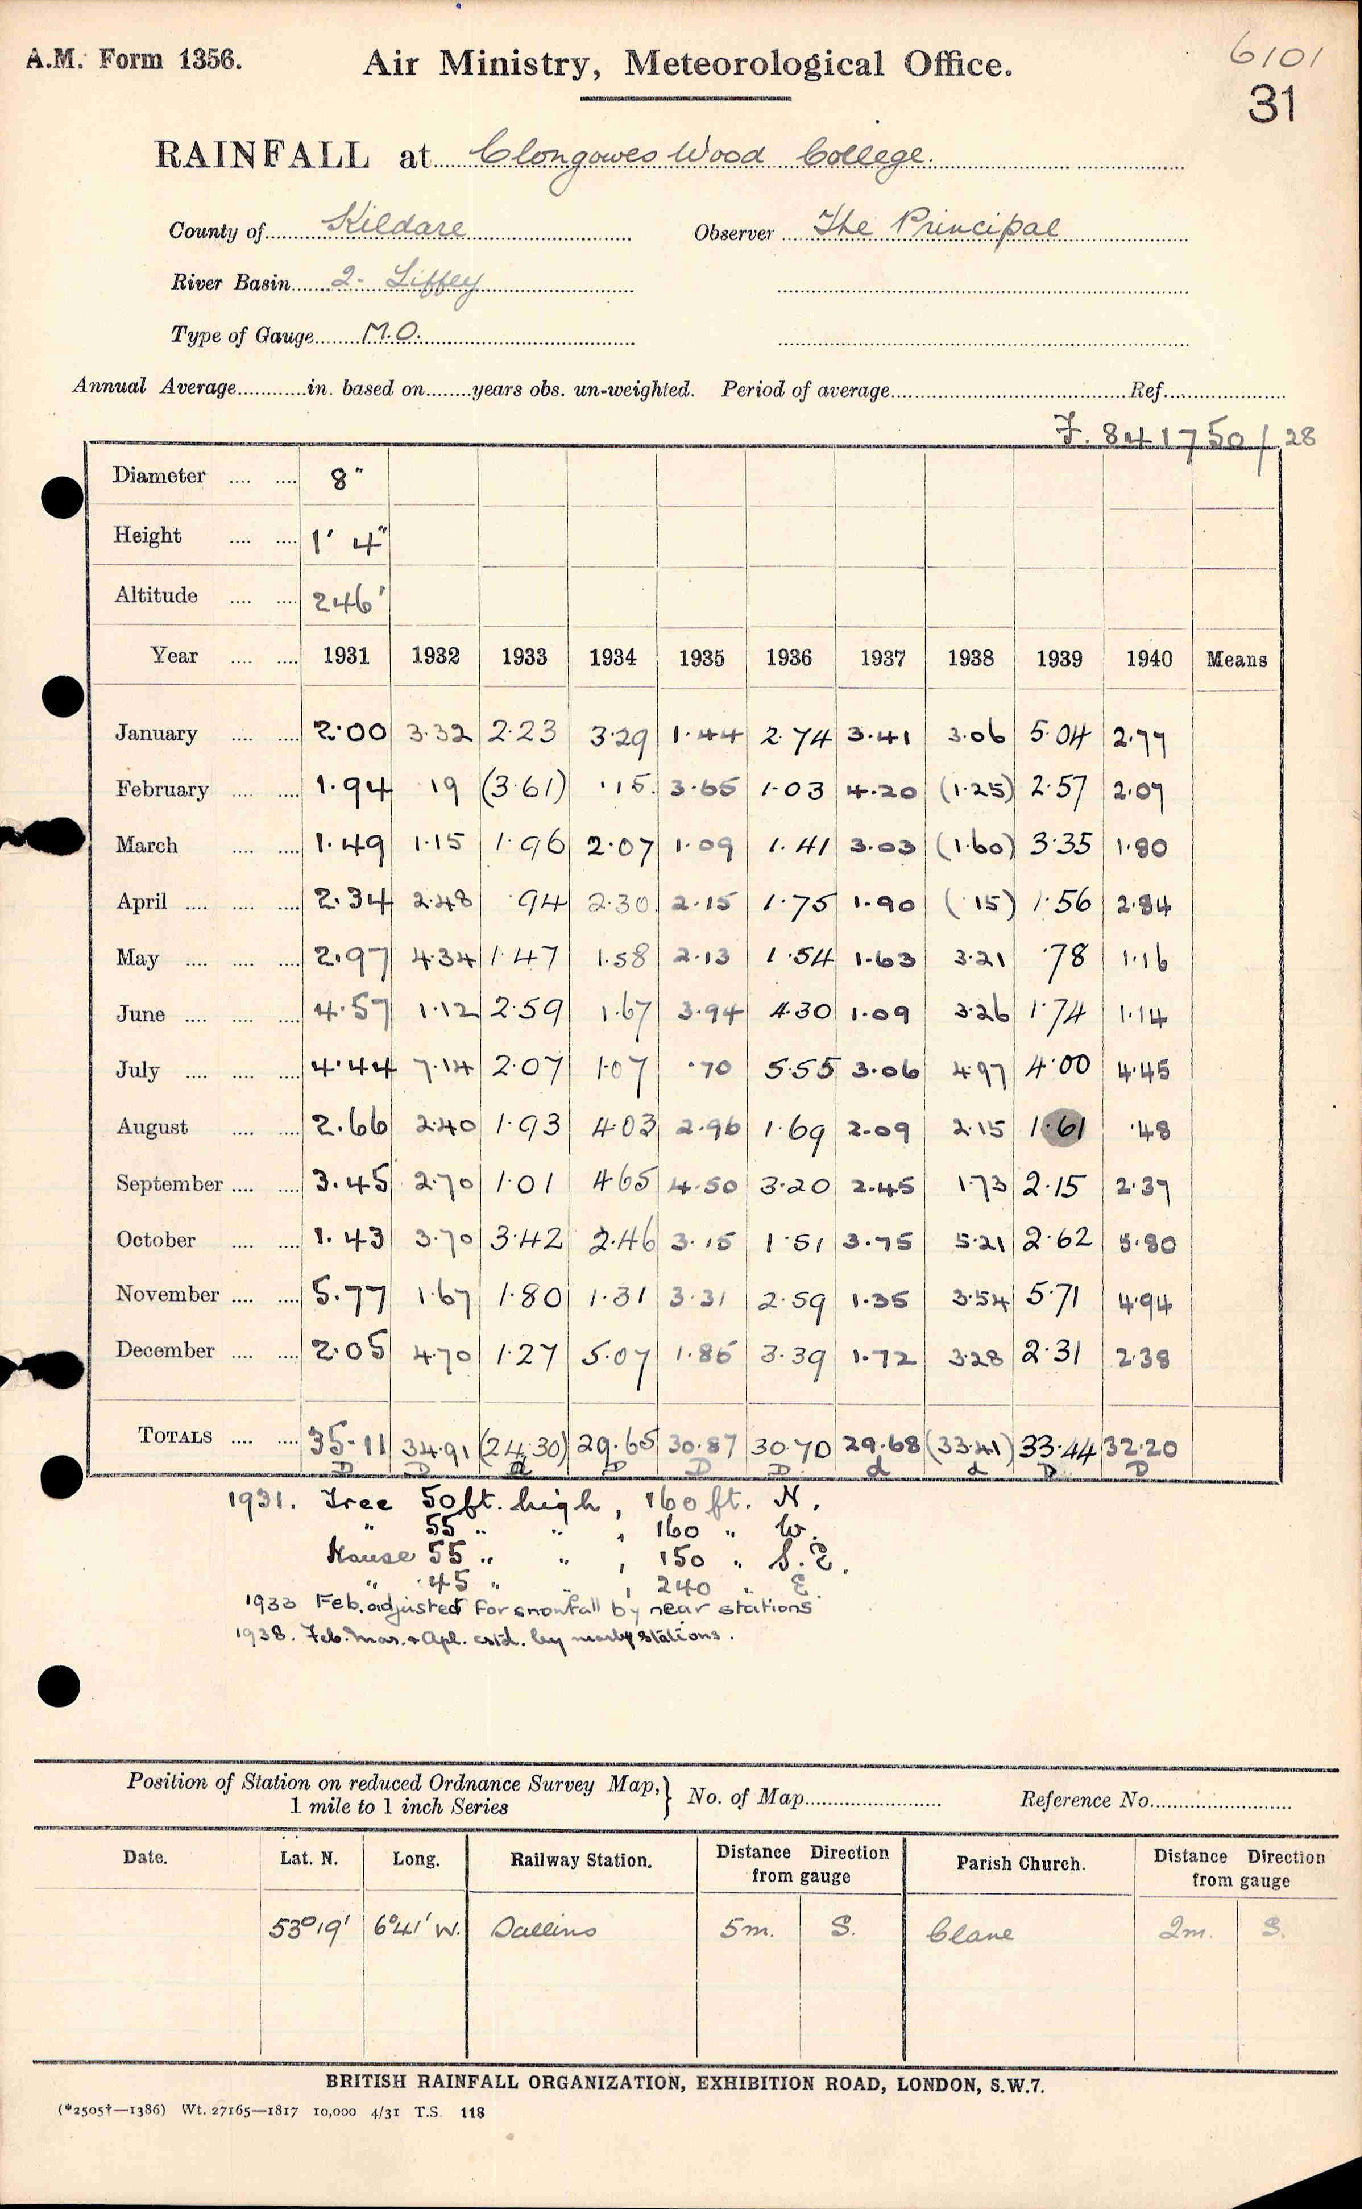 A.M. Form 1356.
Air Ministry, Meteorological Office.
6101
31
RAINFALL at Clongowes Wood College.
County of Kildare Observer The Principal
River Basin 2. Liffey
Type of Gauge M.O.
Annual Average in. based on years obs. un-weighted. Period of average Ref.
F. 841750/28
Diameter 8"
Height 1' 4"
Altitude 246'
Year 1931 1932 1933 1934 1935 1936 1937 1938 1939 1940 Means
January 2.00 3.32 2.23 3.29 1.44 2.74 3.41 3.06 5.04 2.77
February 1.94 19 (3.61) .15 3.65 1.03 4.20 (1.25) 2.57 2.07
March 1.49 1.15 1.96 2.07 1.09 1.41 3.03 (1.60) 3.35 1.80
April 2.34 2.48 .94 2.30 2.15 1.75 1.90 (.15) 1.56 2.84
May 2.97 4.34 1.47 1.58 2.13 1.54 1.63 3.21 .78 1.16
June 4.57 1.12 2.59 1.67 3.94 4.30 1.09 3.26 1.74 1.14
July 4.44 7.14 2.07 1.07 .70 5.55 3.06 4.97 4.00 4.45
August 2.66 2.40 1.93 4.03 2.96 1.69 2.09 2.15 1.61 .48
September 3.45 2.70 1.01 4.65 4.50 3.20 2.45 1.73 2.15 2.37
October 1.43 3.70 3.42 2.46 3.15 1.51 3.75 5.21 2.62 5.80
November 5.77 1.67 1.80 1.31 3.31 2.59 1.35 3.54 5.71 4.94
December 2.05 4.70 1.27 5.07 1.85 3.39 1.72 3.28 2.31 2.38
TOTALS 35.11 34.91 (24.30) 29.65 30.87 30.70 29.68 (33.41) 33.44 32.20
D D d D D D d d D D
1931. Tree 50ft. high, 160 ft. N.
" 55 " " , 160 " W.
House 55 " " , 150 " S.E.
" 45 " " , 240 " E
1933 Feb. adjusted for snowfall by near stations
1938. Feb. Mar. & Apl. estd. by nearby stations.
Position of Station on reduced Ordnance Survey Map, 1 mile to 1 inch Series } No. of Map Reference No.
Date. Lat. N. Long. Railway Station. Distance Direction from gauge Parish Church. Distance Direction from gauge
53°19' 6°41' W. Sallins 5m. S. Clane 2m. S.
BRITISH RAINFALL ORGANIZATION, EXHIBITION ROAD, LONDON, S.W.7.
(*2505†—1386) Wt. 27165—1817 10,000 4/31 T.S. 118